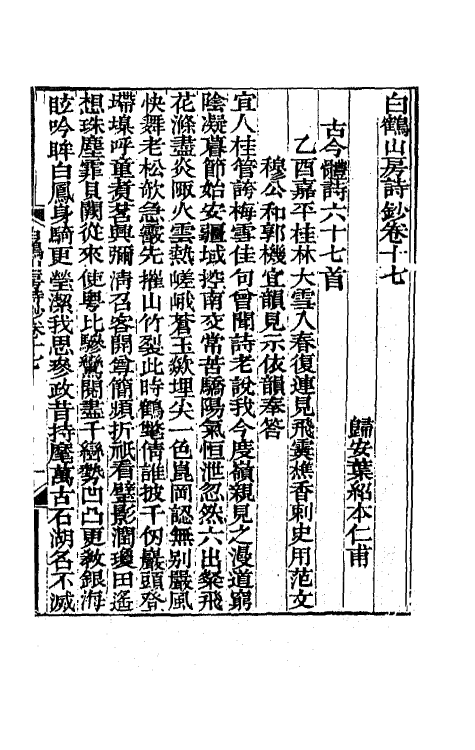 白鶴山房詩鈔卷十七
歸安葉紹本仁甫
古今體詩六十七首
乙酉嘉平桂林大雪入春復連見飛霙樵香刺史用范文
穆公和郭機宜韻見示依韻奉答
宜人桂管誇梅雪佳句曾聞詩老說我今度嶺親見之漫道窮
陰凝暮節始安疆域控南交常苦驕陽氣恒泄忽然六出粲飛
花滌盡炎陬火雲熱嵯峨蒼玉歘埋尖一色崑岡認無別嚴風
快舞老松欹急霰先摧山竹裂此時鶴氅倩誰披千仞巖頭登
墆堄呼童煑茗興彌淸召客開尊簡頻折祇看璧影潤瓊田遙
想珠塵霏貝闕從來使粵比驂鸞閱盡千巒勢凹凸更敎銀海
眩吟眸白鳳身騎更瑩潔我思參政昔持麾萬古石湖名不滅
白鶴山房詩鈔卷十七